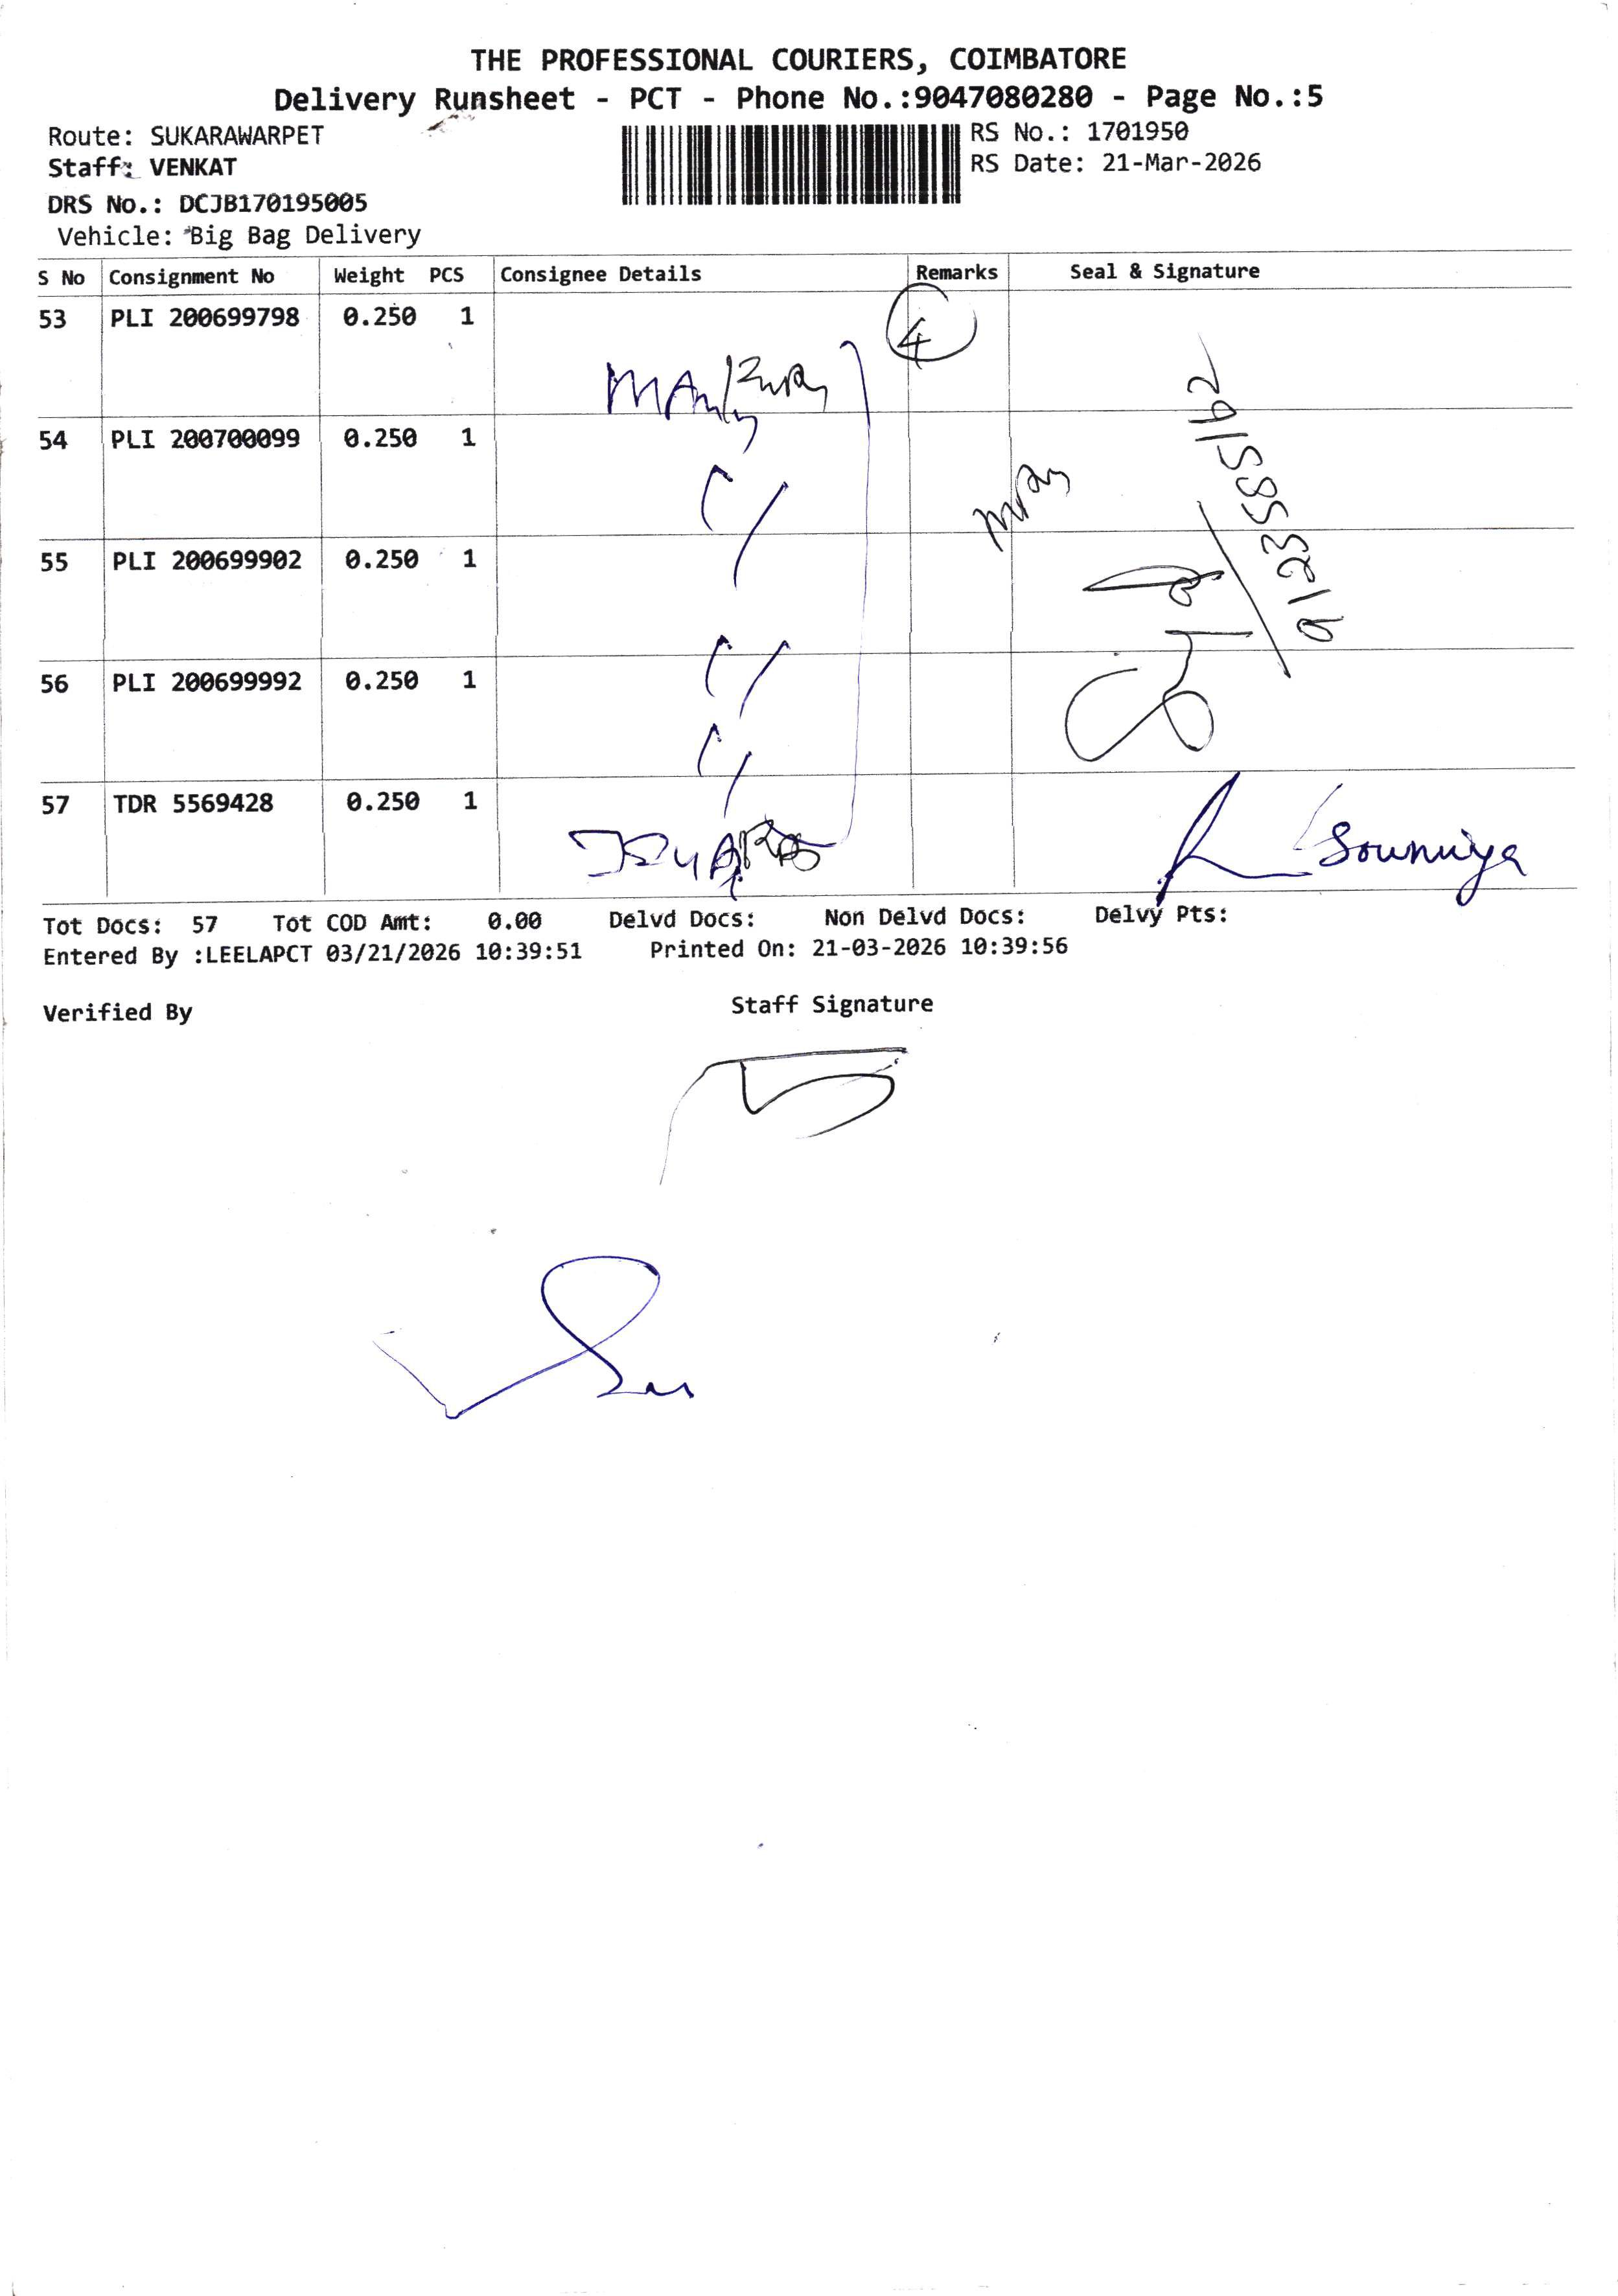 THE PROFESSIONAL COURIERS, COIMBATORE
Delivery Runsheet - PCT - Phone No.:9047080280 - Page No.:5
Route: SUKARAWARPET
RS No.: 1701950
Staff: VENKAT
RS Date: 21-Mar-2026
DRS No.: DCJB170195005
Vehicle: Big Bag Delivery
S No Consignment No Weight PCS Consignee Details Remarks Seal & Signature
53 PLI 200699798 0.250 1 4
54 PLI 200700099 0.250 1
55 PLI 200699902 0.250 1
56 PLI 200699992 0.250 1
57 TDR 5569428 0.250 1 Sounuiya
Tot Docs: 57 Tot COD Amt: 0.00 Delvd Docs: Non Delvd Docs: Delvy Pts:
Entered By :LEELAPCT 03/21/2026 10:39:51 Printed On: 21-03-2026 10:39:56
Verified By Staff Signature